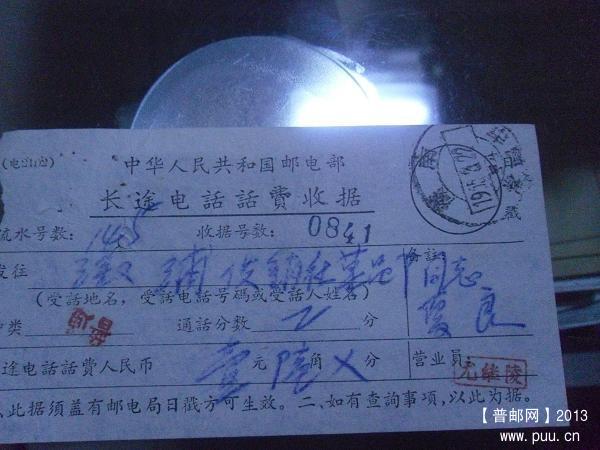 (电2102)
中华人民共和国邮电部
长途电话話費收据
流水号数： 145 收据号数： 0841
发往 供銷社 同志 备註：
(受話地名，受話电話号碼或受話人姓名)
种类 通話分数 2 分 良
途电話話費人民币 壹元 陆角 X 分 营业员：
、此据須盖有邮电局日戳方可生效。二、如有查詢事項，以此为据。
【普邮网】2013
www.puu.cn